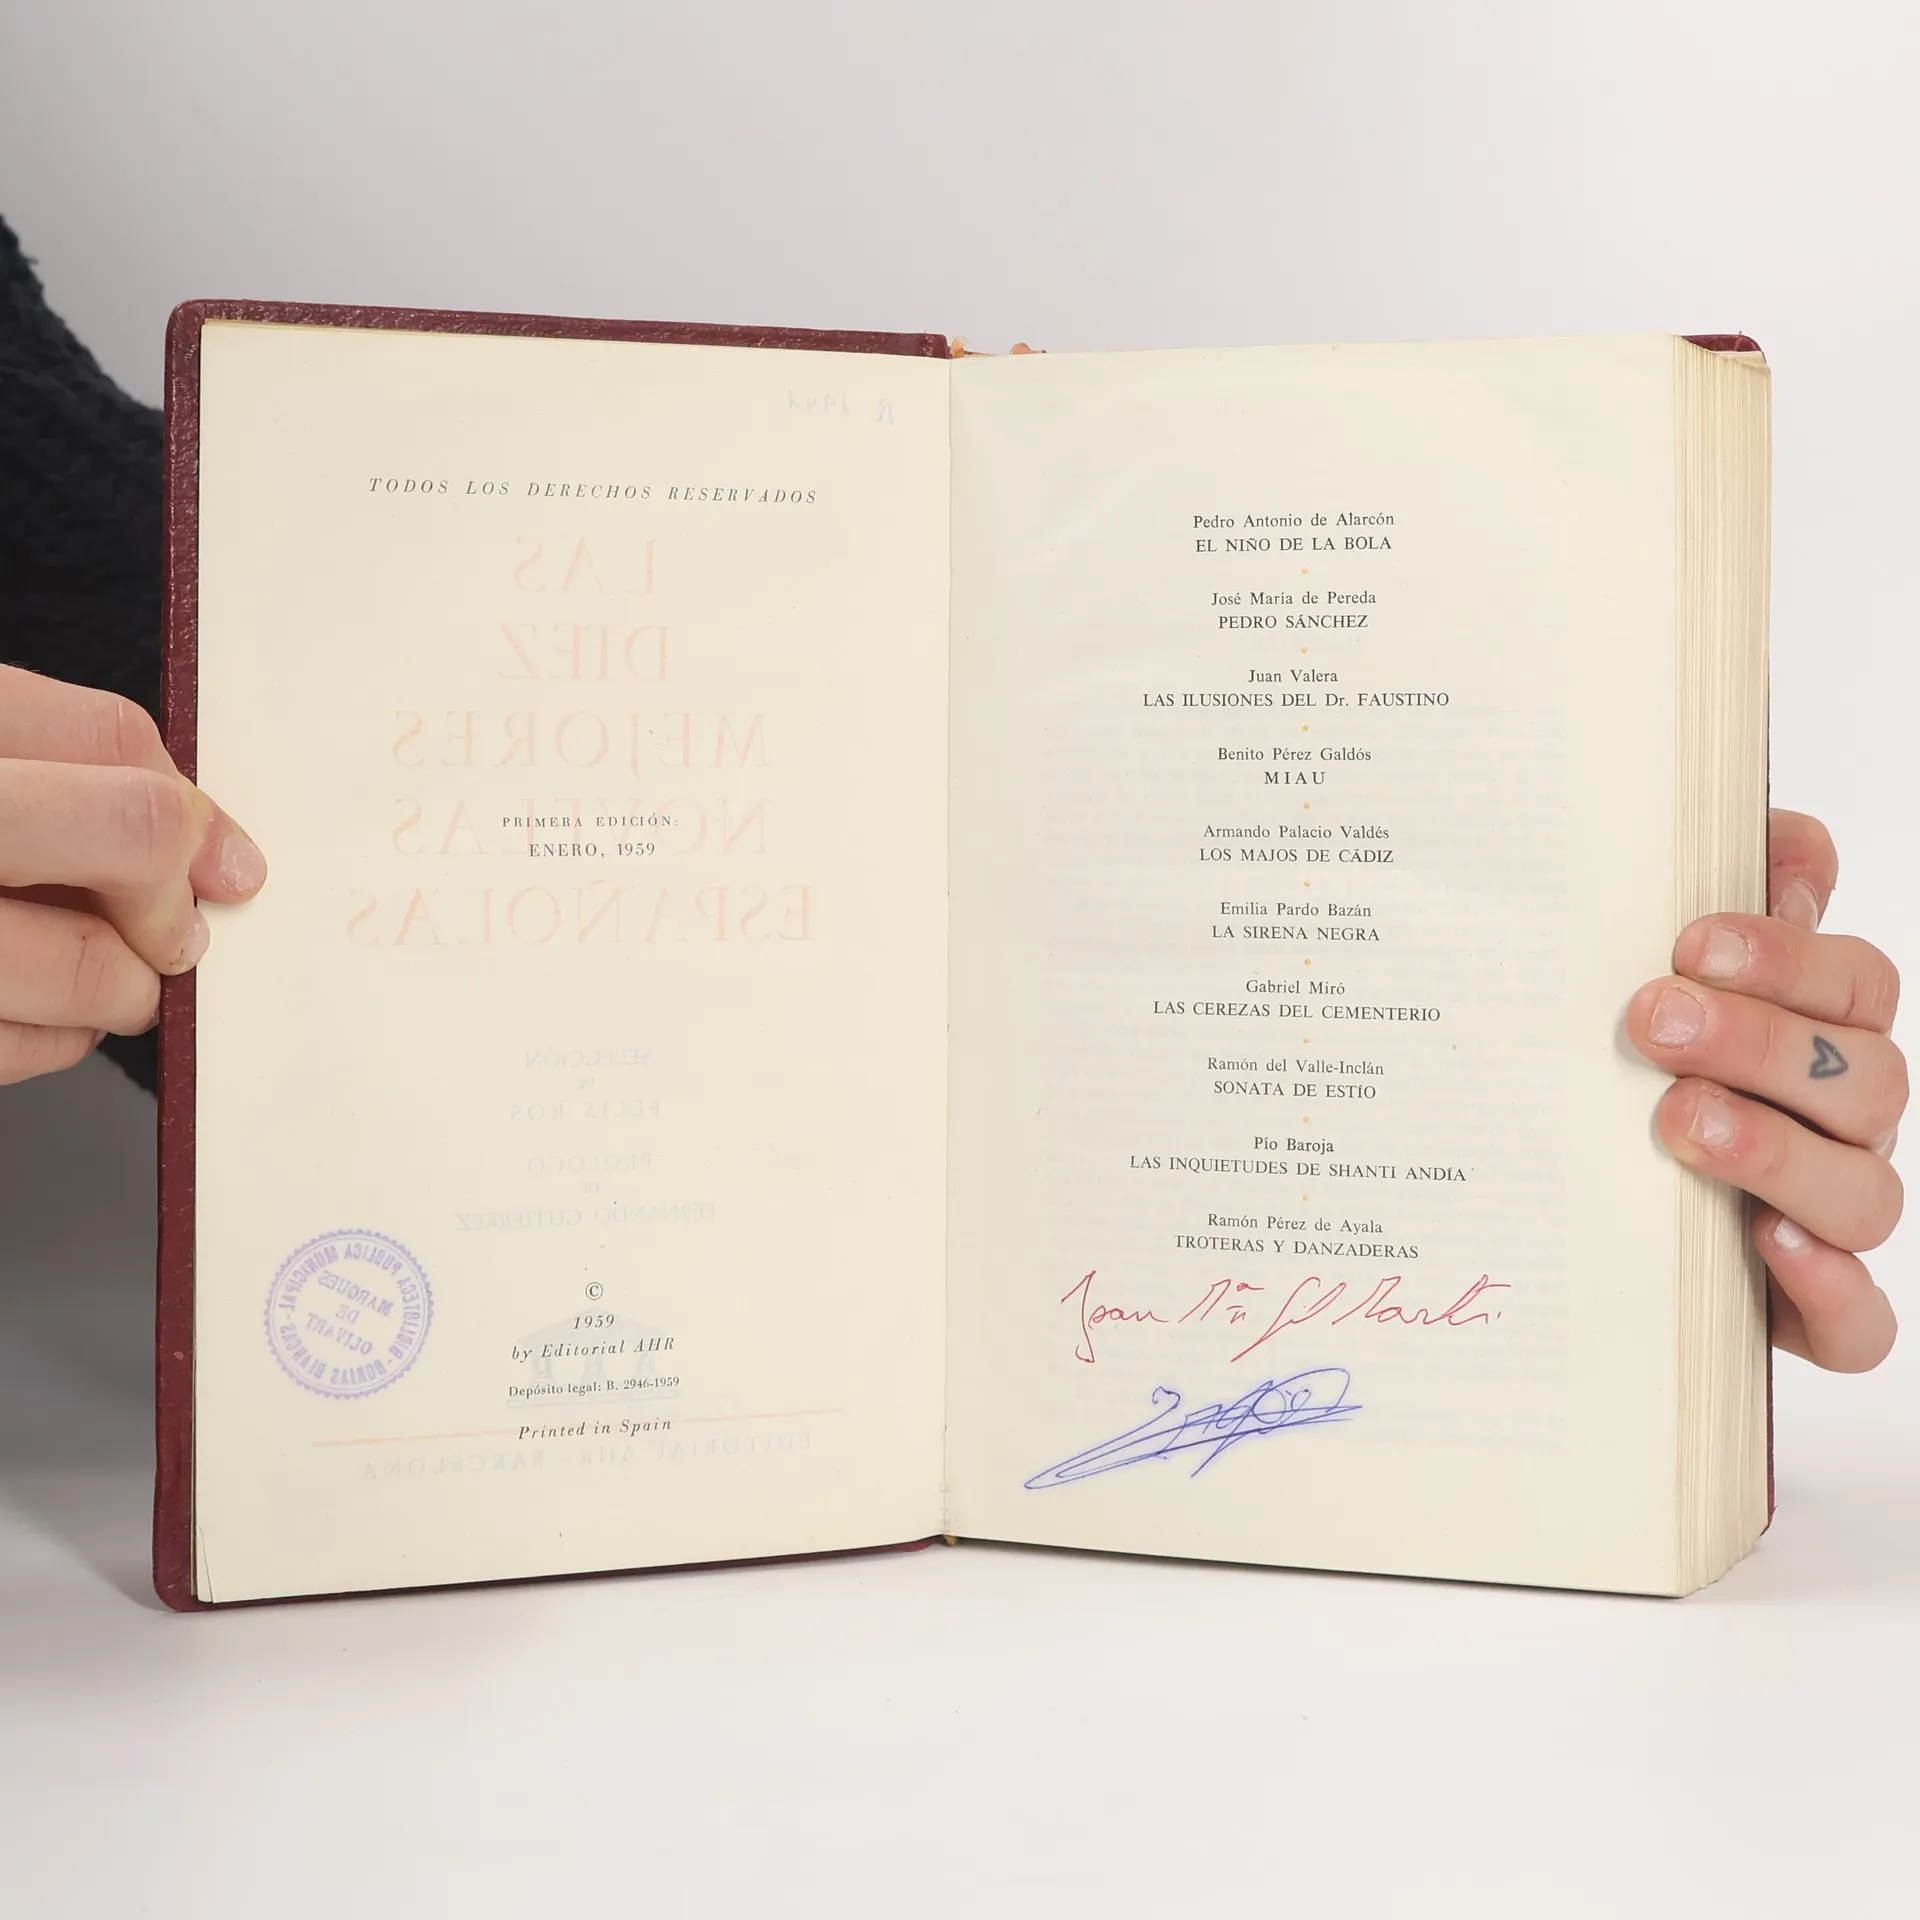 TODOS LOS DERECHOS RESERVADOS
LAS
DIEZ
MEJORES
NOVELAS
ESPAÑOLAS
PRIMERA EDICIÓN:
ENERO, 1959
SELECCIÓN
DE
FELIX ROS
PROLOGO
DE
FERNANDO GUTIERREZ
BIBLIOTECA PUBLICA MUNICIPAL - BORJAS BLANCAS -
MARQUES
DE
OLIVART
©
1959
by Editorial AHR
Depósito legal: B. 2946-1959
Printed in Spain
EDITORIAL AHR - BARCELONA
Pedro Antonio de Alarcón
EL NIÑO DE LA BOLA
José María de Pereda
PEDRO SÁNCHEZ
Juan Valera
LAS ILUSIONES DEL Dr. FAUSTINO
Benito Pérez Galdós
MIAU
Armando Palacio Valdés
LOS MAJOS DE CÁDIZ
Emilia Pardo Bazán
LA SIRENA NEGRA
Gabriel Miró
LAS CEREZAS DEL CEMENTERIO
Ramón del Valle-Inclán
SONATA DE ESTÍO
Pío Baroja
LAS INQUIETUDES DE SHANTI ANDÍA
Ramón Pérez de Ayala
TROTERAS Y DANZADERAS
Joan Mª Gil Martí